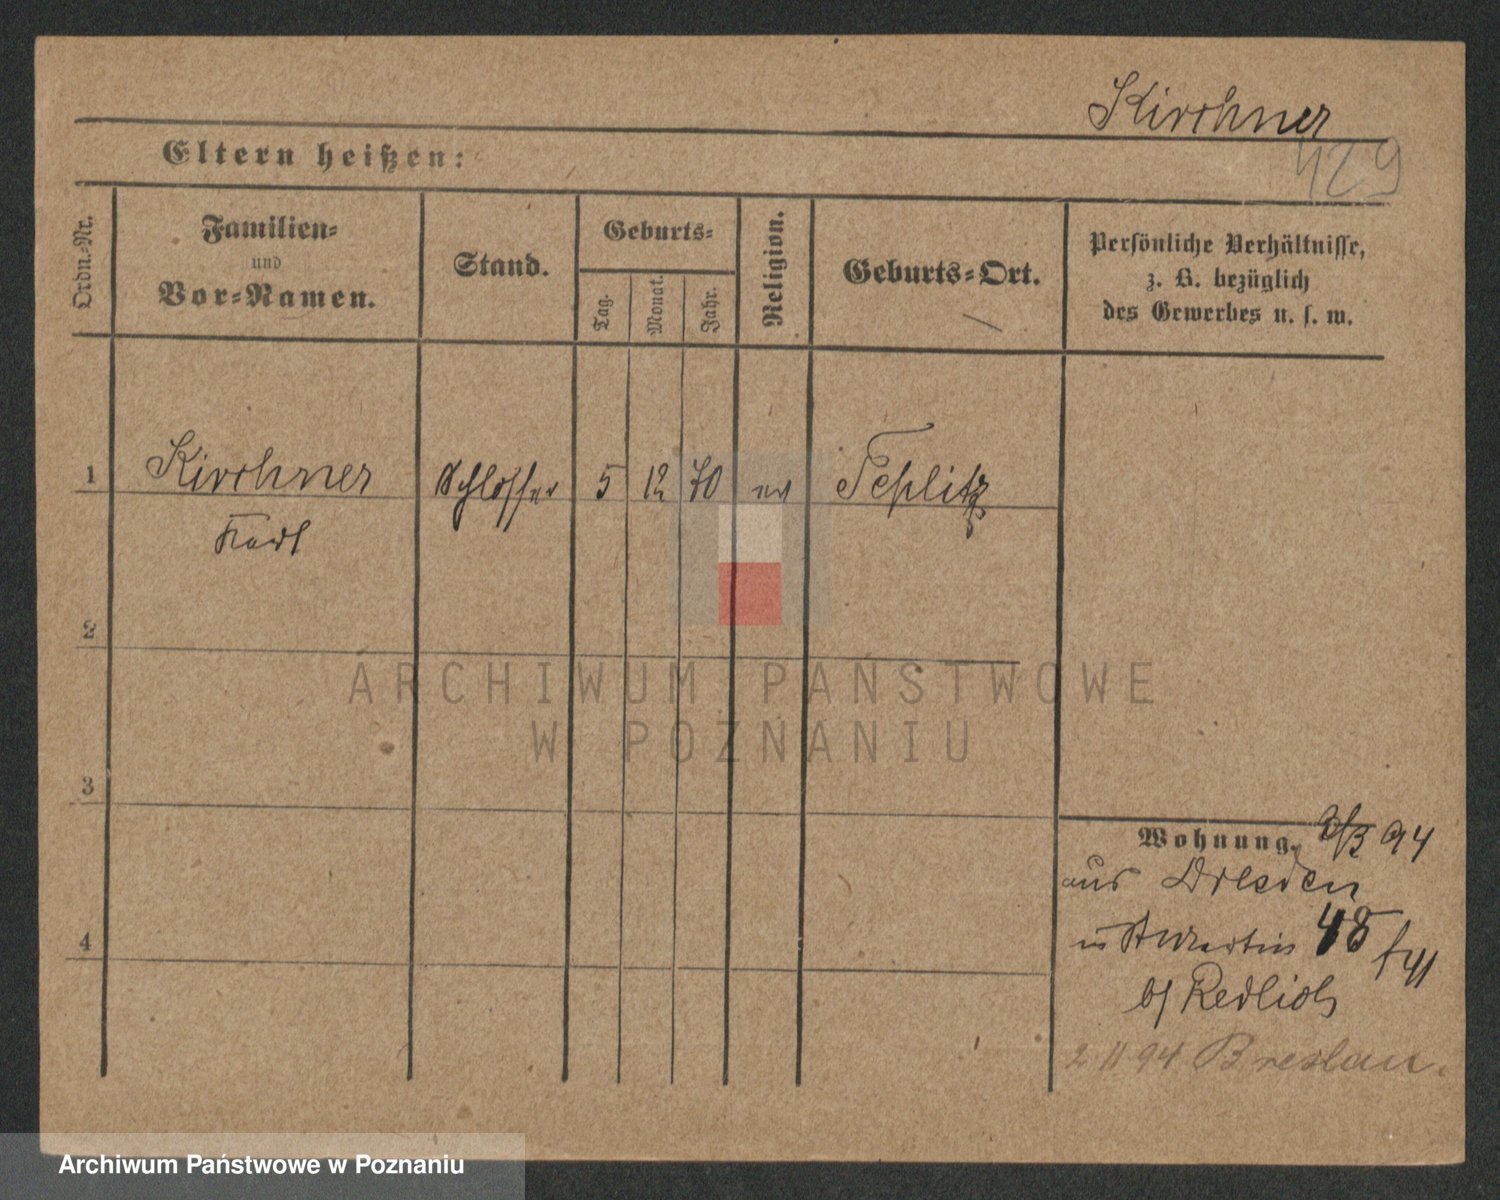 Kirchner
429
Eltern heißen:
Ordn.-Nr.
Familien-
und
Vor-Namen.
Stand.
Geburts-
Tag.
Monat.
Jahr.
Religion.
Geburts-Ort.
Persönliche Verhältnisse,
z. B. bezüglich
des Gewerbes u. s. w.
1 Kirchner Schlosser 5 12 70 ev Teplitz
Karl
2
3
4
Wohnung. 94
aus Dresden
St Martin 48
b/ Redlich
2 11 94 Breslau.
ARCHIWUM PAŃSTWOWE
W POZNANIU
Archiwum Państwowe w Poznaniu